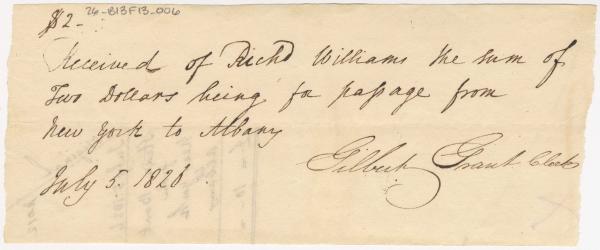 $2-
26-B13F13-006
Received of Richd Williams the sum of
Two Dollars being for passage from
New York to Albany
Gilbert Grant Clerk
July 5. 1826.